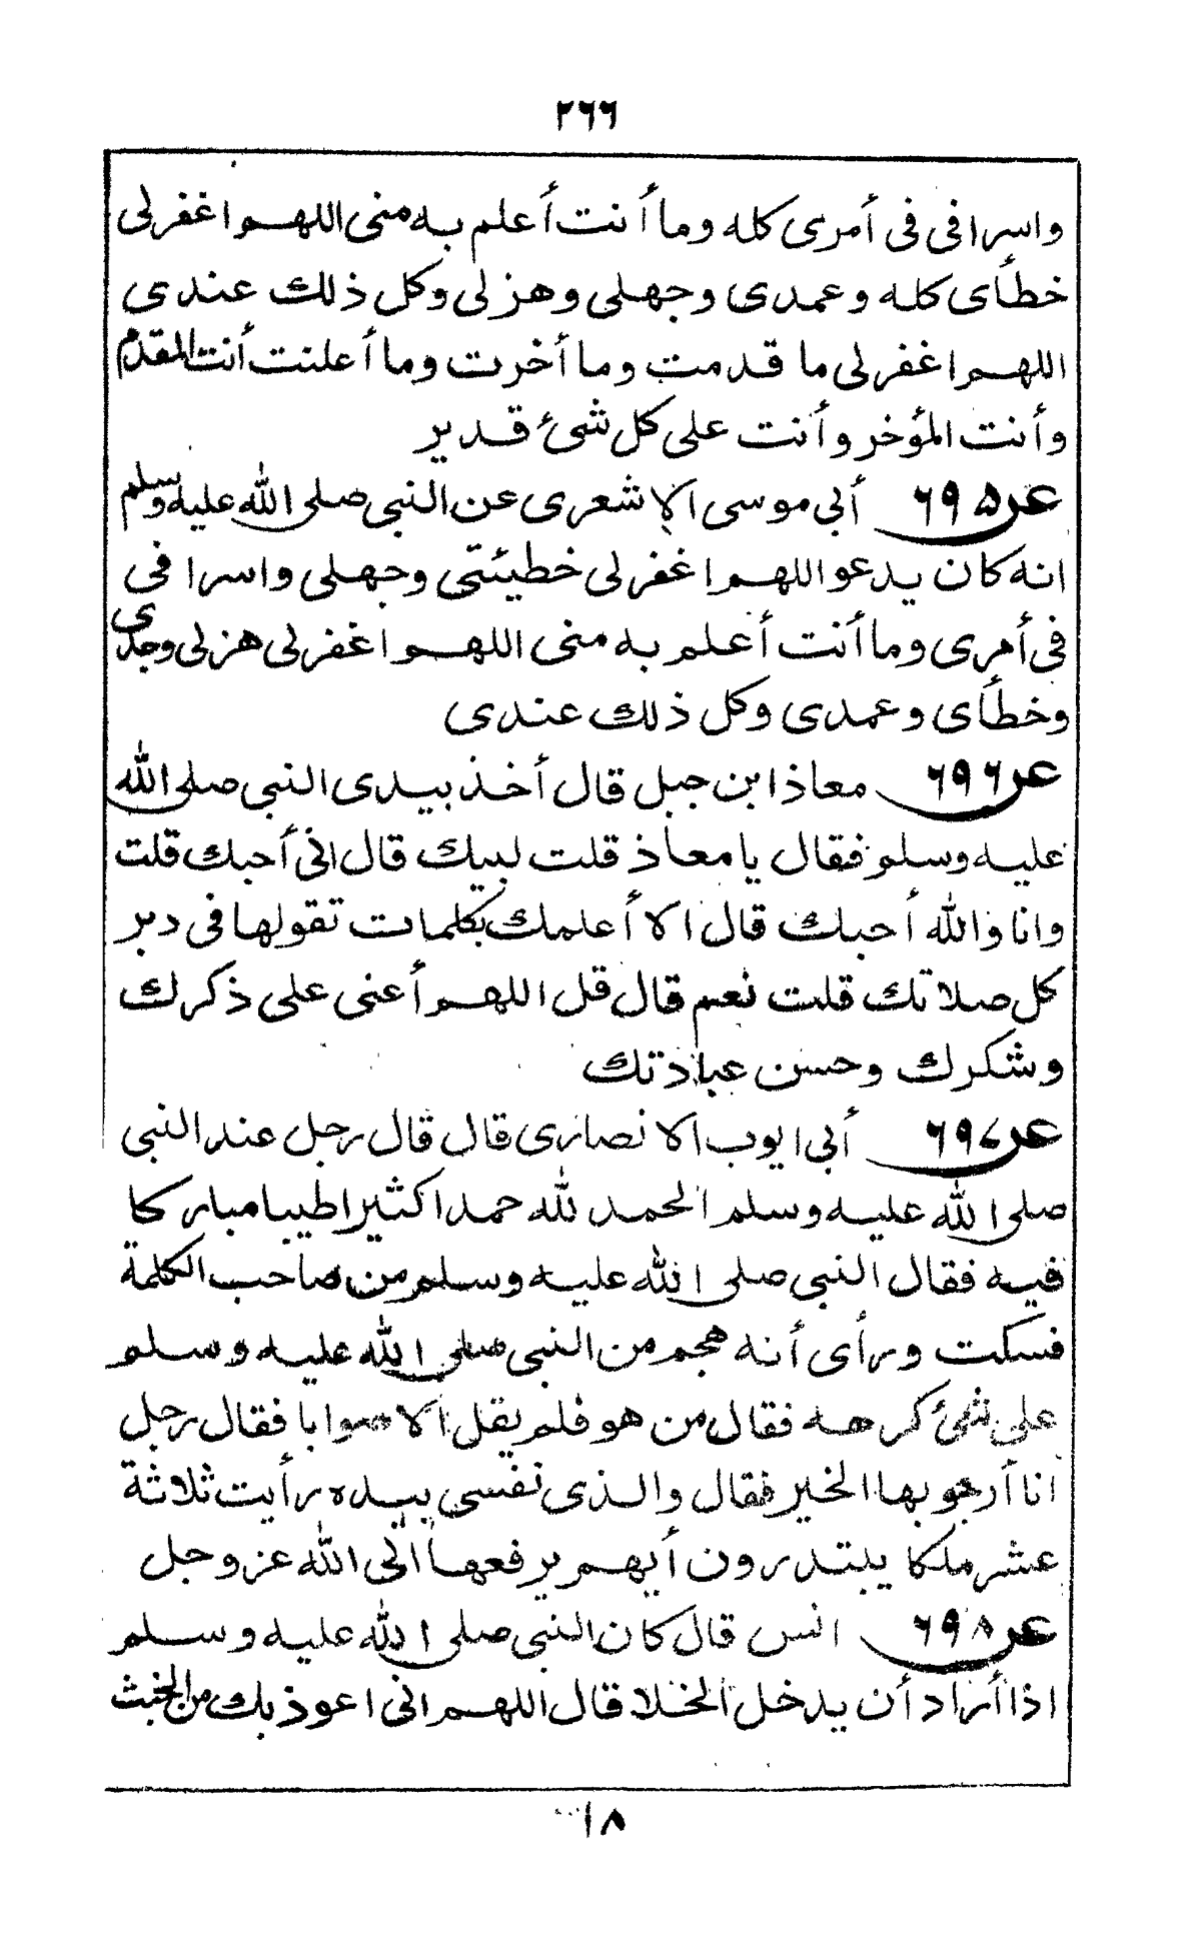 ٢٦٦
واسرافى فى أمرى كله وما أنت أعلم به منى اللهم اغفرلى
خطأى كله وعمدى وجهلى وهزلى وكل ذلك عندى
اللهم اغفرلى ما قدمت وما أخرت وما أعلنت أنت المقدم
وأنت المؤخر وأنت على كل شئ قدير
عن ٦٩٥ أبى موسى الاشعرى عن النبى صلى الله عليه وسلم
انه كان يدعو اللهم اغفرلى خطيئتى وجهلى واسرافى
فى أمرى وما أنت أعلم به منى اللهم اغفرلى هزلى وجدى
وخطأى وعمدى وكل ذلك عندى
عن ٦٩٦ معاذ ابن جبل قال أخذ بيدى النبى صلى الله
عليه وسلم فقال يا معاذ قلت لبيك قال انى أحبك قلت
وانا والله أحبك قال الا أعلمك بكلمات تقولها فى دبر
كل صلاتك قلت نعم قال قل اللهم أعنى على ذكرك
وشكرك وحسن عبادتك
عن ٦٩٧ أبى ايوب الانصارى قال قال رجل عند النبى
صلى الله عليه وسلم الحمد لله حمدا كثيرا طيبا مباركا
فيه فقال النبى صلى الله عليه وسلم من صاحب الكلمة
فسكت ورأى أنه هجم من النبى صلى الله عليه وسلم
على شئ كرهه فقال من هو فلم يقل الا صوابا فقال رجل
انا أرجو بها الخير فقال والذى نفسى بيده رأيت ثلاثة
عشر ملكا يبتدرون أيهم يرفعها الى الله عز وجل
عن ٦٩٨ انس قال كان النبى صلى الله عليه وسلم
اذا أراد أن يدخل الخلا قال اللهم انى اعوذ بك من الخبث
١٨